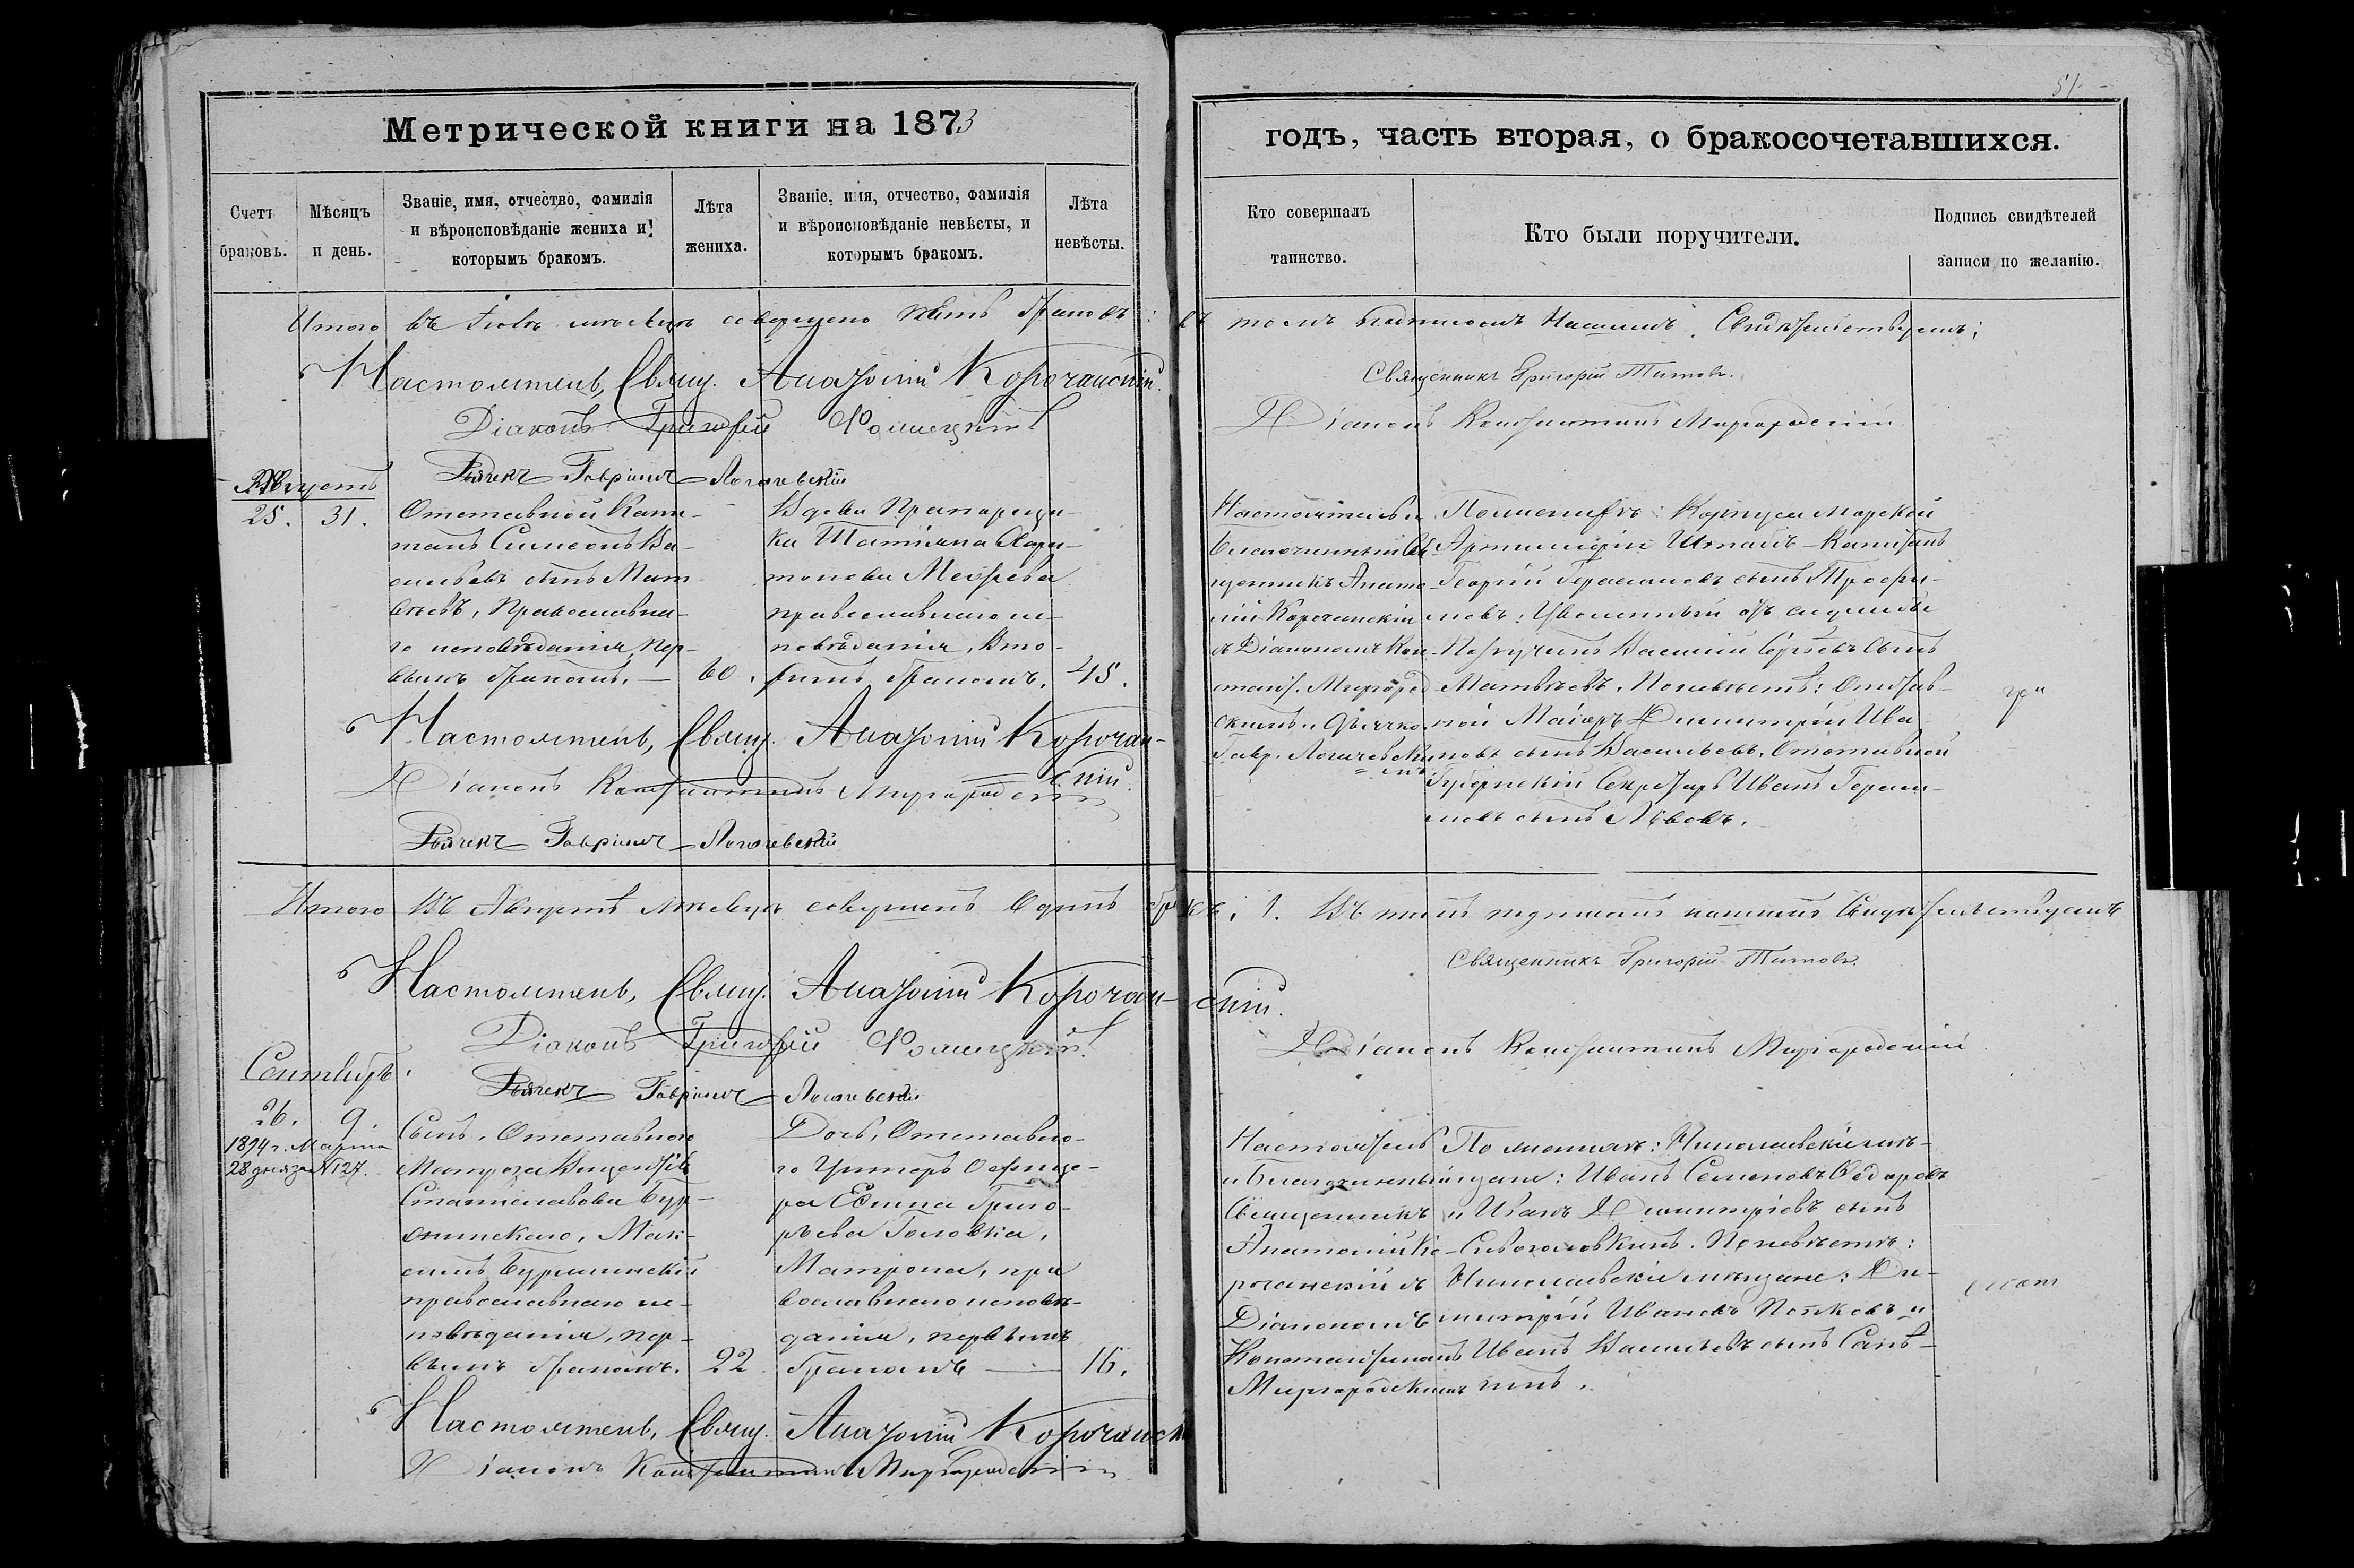 51
Метрической книги на 1873
годъ, часть вторая, о бракосочетавшихся.
Счетъ браковъ.
Мѣсяцъ и день.
Званіе, имя, отчество, фамилія и вѣроисповѣданіе жениха и которымъ бракомъ.
Лѣта жениха.
Званіе, имя, отчество, фамилія и вѣроисповѣданіе невѣсты, и которымъ бракомъ.
Лѣта невѣсты.
Кто совершалъ таинство.
Кто были поручители.
Подпись свидѣтелей записи по желанію.
Итого въ мѣсяцѣ совершено пять браковъ: въ томъ подписомъ нашимъ. Свидѣтельствуемъ;
Настоятель, Свящ. Анатолій Корочанскій.
Діаконъ Григорій
Дьячекъ Гавріилъ Логачевскій
Священникъ Григорій Титовъ.
Діаконъ Константинъ Миргородскій
Августъ
25. 31.
Отставной Капи-
танъ Симеонъ Ва-
сильевъ сынъ Мат-
вѣевъ, Православна-
го исповѣданія, пер-
вымъ бракомъ. — 60.
Вдова Прапорщи-
ка Татіяна Хари-
тонова
православнаго ис-
повѣданія, вто-
рымъ бракомъ. 45.
Настоятель и
Благочинный Св
щенникъ Анато
лій Корочанскій
съ Діакономъ Кон
стант. Миргород
скимъ и Дьячко.
Гавр. Логачевски
мъ
По женихѣ: Корпуса Морской
Артиллеріи Штабъ-Капитанъ
Георгій Герасимовъ сынъ Трофи-
мовъ: Уволенный отъ службы
Поручикъ Василій Сергѣевъ сынъ
Матвѣевъ. По невѣстѣ: Отстав-
ной Маіоръ Димитрій Ива
новъ сынъ Васильевъ, Отставной
Губернскій Секретарь Иванъ Гераси-
мовъ сынъ Львовъ.
Настоятель, Свящ. Анатолій Корочан-
скій.
Діаконъ Константинъ Миргородскій
Дьячекъ Гавріилъ Логачевскій
Итого въ Августѣ мѣсяцѣ совершенъ одинъ бракъ, 1. Въ томъ подписомъ нашимъ Свидѣтельствуемъ
Настоятель, Свящ. Анатолій Корочан-скій.
Священникъ Григорій Титовъ.
Діаконъ Григорій
Діаконъ Константинъ Миргородскій
Дьячекъ Гавріилъ Логачевскій
Сентябрь.
26. 9.
1894 г. Марта
28 дня за № 127.
Сынъ, Отставнаго
Матроса Викентія
Станиславова Бур-
Мак-
симъ
православнаго ис-
повѣданія, пер-
вымъ бракомъ. 22
Дочь, Отставно-
го Унтеръ Офице-
ра Григо-
рьева Головка,
Матрона, пра
вославнаго исповѣ-
данія, первымъ
бракомъ — 16.
Настоятель
и Благочинный
Священникъ
Анатолій Ко-
рочанскій съ
Діакономъ
Константиномъ
Миргородскимъ
По женихѣ: Николаевскіе мѣ-
щане: Иванъ Семеновъ Ѳедоровъ
и Иванъ Димитріевъ сынъ
Сивоголовкинъ. По невѣстѣ:
Николаевскіе мѣщане: Ди-
митрій Ивановъ Попковъ и
Иванъ Васильевъ сынъ
Настоятель, Свящ. Анатолій Корочанск
Діаконъ Константинъ Миргородскій